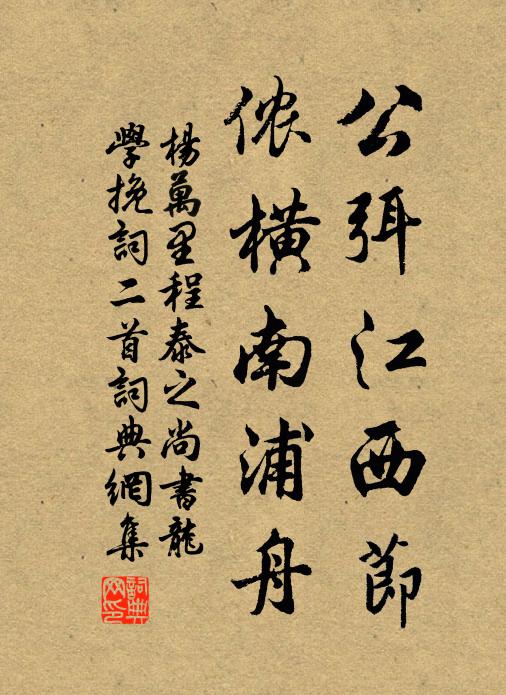 公弭江西節
侬橫南浦舟
楊萬里程泰之尚書龍
學挽詞二首詞典網集
詞典網印